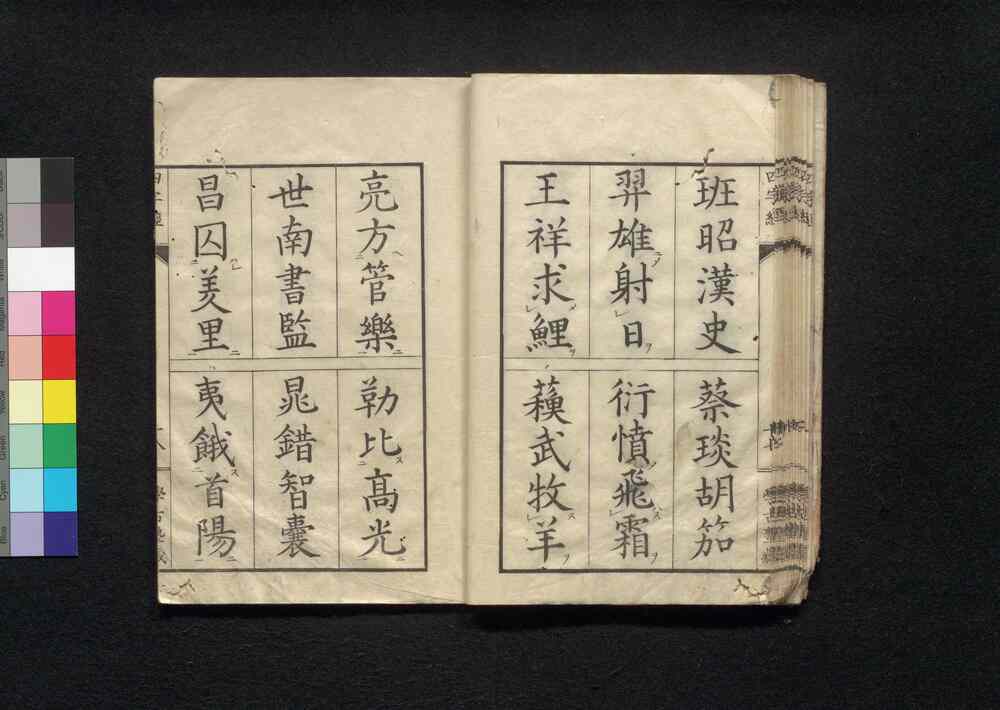 班昭漢史 蔡琰胡笳
羿雄射日 衍憤飛霜
王祥求鯉 蘓武牧羊
亮方管樂 勒比高光
世南書監 晁錯智囊
昌囚羑里 夷餓首陽